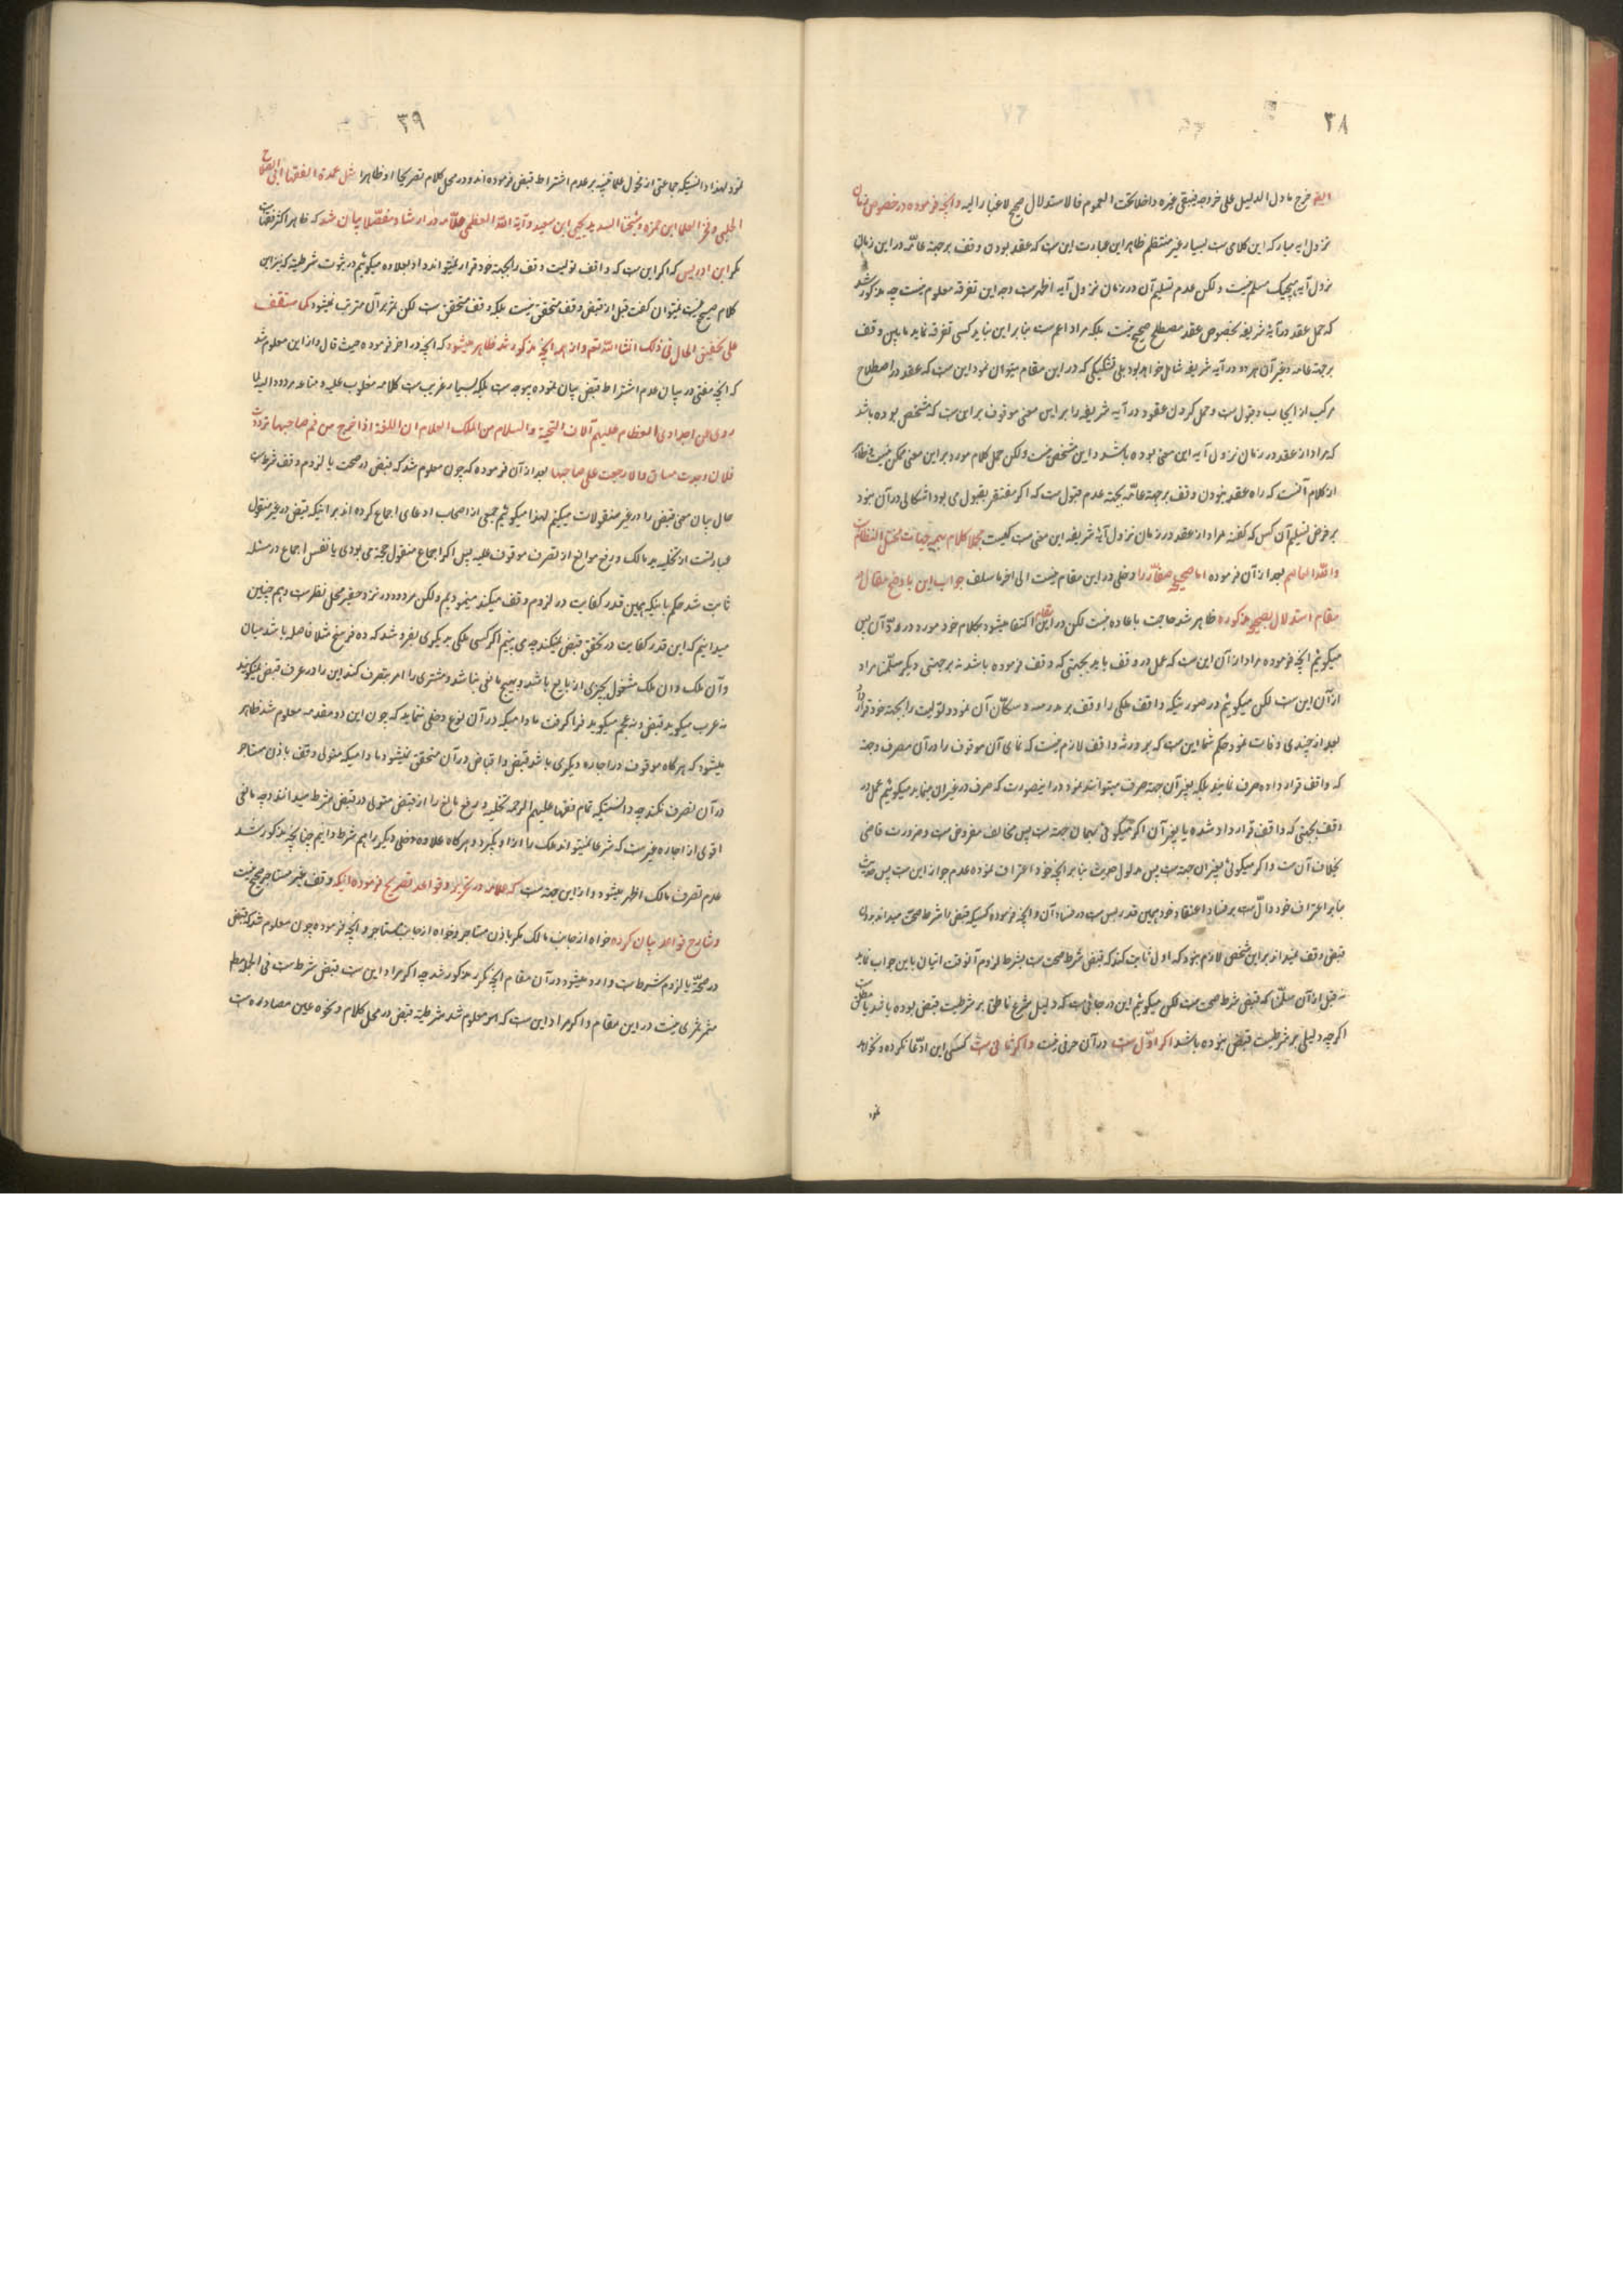 ۳۸
خرج ما دل الدلیل علی خروجه فیبقی غیره داخلا تحت العموم فالاستدلال صحیح لا غبار علیه وآنچه فرموده در خصوص زمان
نزول ایه مبارکه این کلامی ست بسیار غیر منتظم ظاهر این عبارت این ست که عقد بودن وقف بر جهة عامّه در این زمان
نزول آیه هیچیک مسلم نیست ولکن عدم تسلیم آن در زمان نزول آیه اظهر ست وجه این تفرقه معلوم نیست چه مذکور شد
که حمل عقد در آیهٔ شریفه بخصوص عقد مصطلح صحیح نیست بلکه مراد اعم ست بنا بر این نباید کسی تفرقه نماید ما بین وقف
بر جهة عامه وغیر آن هر دو در آیه شریفه شامل خواهد بود بلی تشکیکی که در این مقام میتوان نمود این ست که عقد در اصطلاح
مرکب از ایجاب وقبول ست وحمل کردن عقود در آیه شریفه را بر این معنی موقوف بر این ست که مشخص بوده باشد
که مراد از عقد در زمان نزول آیه این معنی بوده باشد واین مشخص نیست ولکن حمل کلام مورد بر این معنی ممکن نیست
از کلام آنست که راه عقد نبودن وقف بر جهة عامّه بجهة عدم قبول ست که اگر مفتقر بقبول می بود اشکالی در آن نبود
بر فرض تسلیم آن کس که گفته مراد از عقد در زمان نزول آیهٔ شریفه این معنی ست کیست مجملا کلام بهمه جهات مختل النظام ست
والله العاصم بعد از آن فرموده اما صحیحه صفار را دخلی در این مقام نیست الی اخر ما سلف جواب این با وضح مقال در
مقام استدلال بصحیحه مذکوره ظاهر شد حاجت باعاده نیست لکن در این مقام اکتفا میشود بکلام خود مورد در ردّ آن پس
میگوئیم آنچه فرموده مراد از آن این ست که عمل در وقف باید بجهتی که وقف فرموده باشد نه بر جهتی دیگر سلّمنا مراد
از آن این ست لکن میگوئیم در صورتیکه واقف ملکی را وقف بر مدرسه وسکّان آن نمود وتولیت را بجهة خود قرار داد
بعد از چندی وفات نمود حکم شما این ست که بر ورثه واقف لازم نیست که نمای آن موقوف را در آن مصرف وجهة
که واقف قرار داده صرف نمایند بلکه بغیر آن جهة صرف میتوانند نمود در اینصورت که صرف در غیر ان مینماید میگوئیم عمل در
وقف بجهتی که واقف قرار داد شده یا بغیر آن اگر میگوئی بهمان جهة ست پس مخالف مفروض ست وضرورت قاضی
بخلاف آن ست واگر میگوئی بغیر ان جهة ست پس مدلول حدیث بنا بر آنچه خود اعتراف نموده عدم جواز این ست پس حدیث
بنا بر اعتراف خود دالّ ست بر فساد اعتقاد خود همین قدر بس ست در فساد آن وآنچه فرموده کسیکه قبض را شرط صحّت میداند بدون
قبض وقف نمیداند بر این شخص لازم بود که اول ثابت کند که قبض شرط صحت ست بشرط لزوم آنوقت اتیان باین جواب نماید
نه قبل از آن سلّمنا که قبض شرط صحت ست لکن میگوئیم این در جائی ست که دلیل شرع ناطق بر شرطیت قبض بوده باشد یا مطلق ست
اگر چه دلیلی بر شرطیت قبض نبوده باشد اگر اوّل ست در آن حرفی نیست واگر ثانی ست کسی این ادّعا نکرده ونخواهد
نمود
۳۹
نمود لهذا دانستیکه جماعتی از فحول علما تنبیه بر عدم اشتراط قبض فرموده اند ودر محل کلام تصریحا او ظاهرا مثل عمدة الفقها ابی الصلاح
الحلبی وفخر العلما ابن حمزه وشیخنا السدید یحیی ابن سعید وآیة الله العظمی علاّمه در ارشاد ومفصّلا بیان شد که ظاهر اکثر فقها ست
مگر ابن ادریس که اگر این ست که واقف تولیت وقف را بجهة خود قرار نمیتواند داد بعلاوه میگوئیم در ثبوت شرطیت که نیز این
کلام صحیح نیست نمیتوان گفت قبل از قبض وقف متحقق نیست بلکه وقف متحقق ست لکن ثمر بر آن مترتب نمیشود کما ستقف
علی تحقیق الحال فی ذلک انشا الله تعالی واز همه آنچه مذکور شد ظاهر میشود که آنچه در اخر فرموده حیث قال واز این معلوم شد
که آنچه مفتی در بیان عدم اشتراط قبض بیان نموده بیوجه ست بلکه بسیار غریب ست کلامه مغلوب علیه ومتاعه مردود الیه لما
روی عن اجدادی العظام علیهم آلاف التحیة والسلام من الملک العلام ان اللعنة اذا خرج من فم صاحبها تردّدت
فان وجدت مساق والا رجعت علی صاحبها بعد از آن فرموده که چون معلوم شد که قبض در صحت یا لزوم وقف شرط ست
حال بیان معنی قبض را در غیر منقولات میکنیم لهذا میگوئیم جمعی از اصحاب ادعای اجماع کرده اند بر اینکه قبض در غیر منقول
عبارتست از تخلیه ید مالک ورفع موانع از تصرف موقوف علیه پس اگر اجماع منقول حجة می بودی یا نفس اجماع در مسئله
ثابت شد حکم باینکه همین قدر کفایت در لزوم وقف میکند مینمودیم ولکن مردود در نزد حقیر محل نظر ست وهم چنین
میدانیم که این قدر کفایت در تحقق قبض نمیکند چه می بینیم اگر کسی ملکی بدیگری بفروشد که ده فرسخ مثلا فاصله باشد میان
وآن ملک وان ملک مشغول بچیزی از بایع باشد وهیچ مانعی نباشد ومشتری را امر بتصرف کند این را در عرف قبض نمیگویند
نه عرب میگوید قبض ونه عجم میگوید فرا گرفت مادامیکه در آن نوع دخلی ننماید که چون این دو مقدمه معلوم شد ظاهر
میشود که هر گاه موقوف در اجاره دیگری باشد قبض واقباض در آن متحقق نمیشود مادامیکه متولی وقف باذن مستاجر
در آن تصرف نکند چه دانستیکه تمام فقها علیهم الرحمه تخلیه ورفع مانع را از قبض متولی در قبض شرط میدانند وچه مانعی
اقوی از اجاره غیر ست که شرعا نمیتواند ملک را از او بگیرد وهر گاه علاوه دخلی دیگر را هم شرط دانیم چنانچه مذکور شد
عدم تصرف مالک اظهر میشود واز این جهة ست که علامه در تحریر وقواعد تصریح فرموده اینکه وقف غیر مستاجر صحیح نیست
وشارح قواعد بیان کرده خواه از جانب مالک مگر باذن مستاجر وخواه از جانب مستاجر وآنچه فرموده چون معلوم شد که قبض
در صحّة یا لزوم شرط ست وارد میشود در آن مقام آنچه مکرر مذکور شد چه اگر مراد این ست قبض شرط ست فی الجمله
مثمر ثمری نیست در این مقام واگر مراد این ست که هو معلوم شد شرطیة قبض در محل کلام ونحوه عین مصادره ست